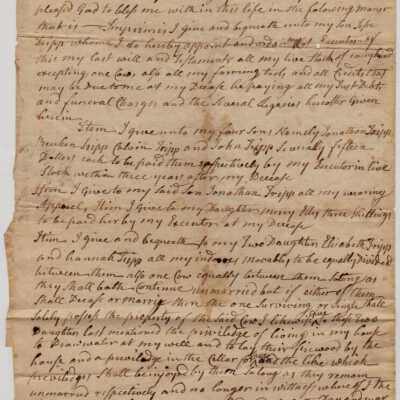 pleased God to bless me with in this life in the following manner
that is — Imprimis I give and bequeath unto my son
Tripp whom I do hereby appoint and Executor of
this my last will and Testament all my live Stock of
excepting one Cow also all my farming tools and all Credits that
may be Due to me at my Decease he paying all my Just Debts
and funeral Charges and the Several Legacies hereafter Given
herein
Item I give unto my four Sons Namely Jonathan Tripp
Reuben Tripp Calvin Tripp and John Tripp Severally fifteen
Dollars each to be paid them respectively by my Executor in live
Stock within three years after my Decease
Item I give to my Said Son Jonathan Tripp all my wearing
Apparel, Item I Give to my Daughter Mercy three Shillings
to be paid her by my Executor at my Decease
Item I give and bequeath to my Two Daughters Elizabeth Tripp
and Hannah Tripp all my indoors movables to be equally Divided
between them also one Cow equally between them So long as
they Shall both Continue unmarried but if either of them
Shall Decease or marry then the one Surviving or Single Shall
Solely possess the property of the Said Cow I likewise give these two
Daughters last mentioned the priviledge of living in my house
to Draw water at my well and to lay their firewood by the
house and a priviledge in the Cellar and the like which
priviledges Shall be injoyed by them So long as they remain
unmarried respectively and no longer in witness whereof I the